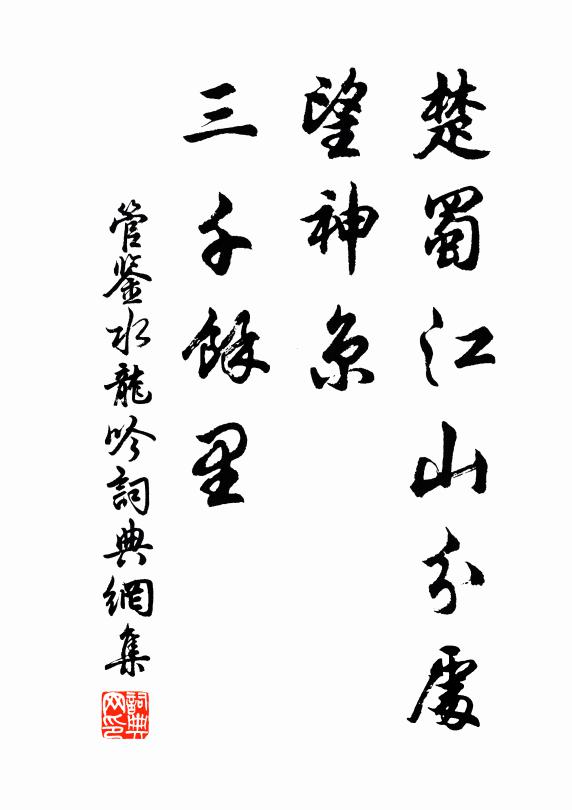 楚蜀江山分處
望神京
三千餘里
管鉴水龍吟詞典網集
詞典网印